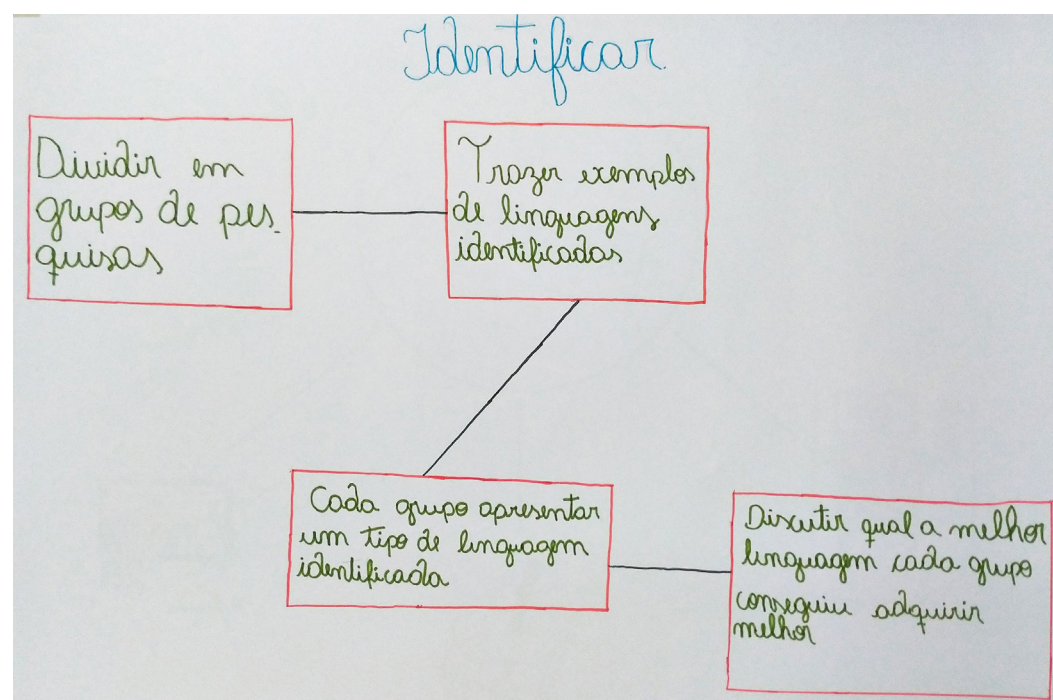 Identificar
Dividir em
grupos de pes-
quisas
Trazer exemplos
de linguagens
identificadas
Cada grupo apresentar
um tipo de linguagem
identificada
Discutir qual a melhor
linguagem cada grupo
conseguiu adquirir
melhor